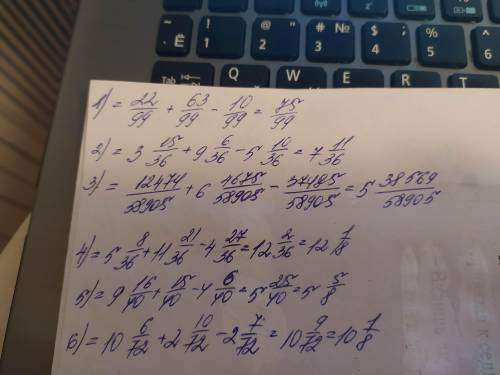 ~ ! @ # № $ ; % 5
Ё 1 2 3 4 5 %
Tab Q W E R
1) = 22/99 + 63/99 - 10/99 = 75/99
2) = 3 15/36 + 9 6/36 - 5 10/36 = 7 11/36
3) = 12474/58905 + 6 4675/58905 - 37485/58905 = 5 38569/58905
4) = 5 8/36 + 11 21/36 - 4 27/36 = 12 2/36 = 12 1/8
5) = 9 16/40 + 15/40 - 4 6/40 = 5 25/40 = 5 5/8
6) = 10 6/72 + 2 10/72 - 2 7/72 = 10 9/72 = 10 1/8